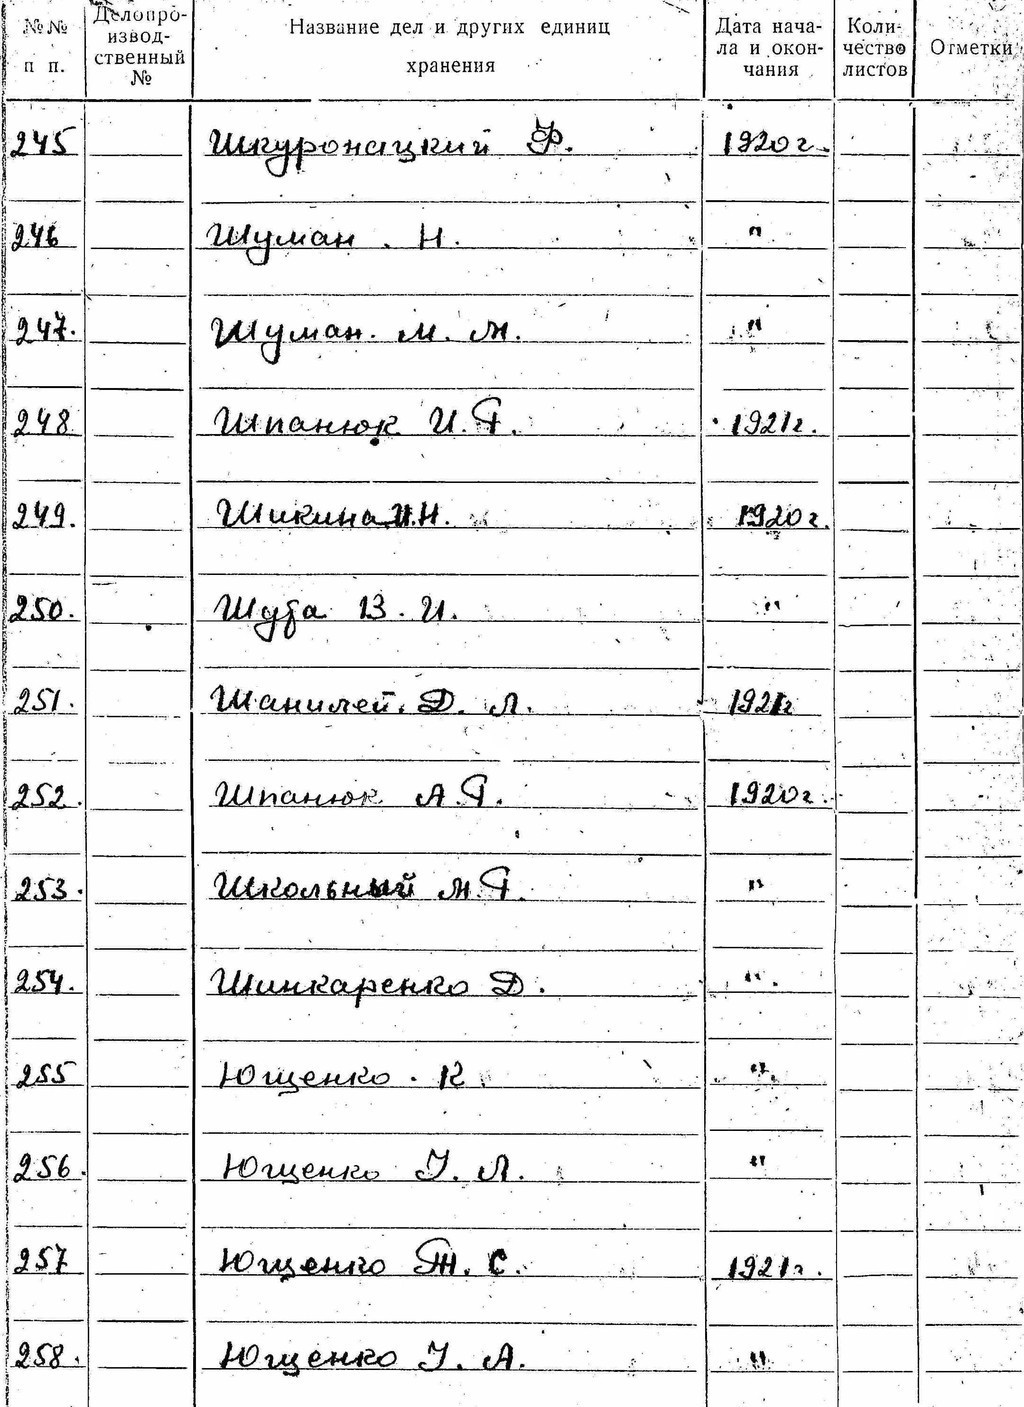 №№ п п. Делопроизвод-ственный № Название дел и других единиц хранения Дата нача-ла и окон-чания Коли-чество листов Отметки
245 Шкуронацкий Ф. 1920 г.
246 Шуман. Н. "
247. Шуман. М. М. "
248 Шпанюк И. Г. 1921 г.
249. Шикина И.Н. 1920 г.
250. Шуба В. И. "
251. Шанилей. Д. Л. 1921 г
252. Шпанюк А. Г. 1920 г.
253. Школьный М. Г. "
254. Шинкаренко Д. "
255 Ющенко. К. "
256. Ющенко У. Л. "
257 Ющенко Ж. С. 1921 г.
258. Ющенко У. А. "